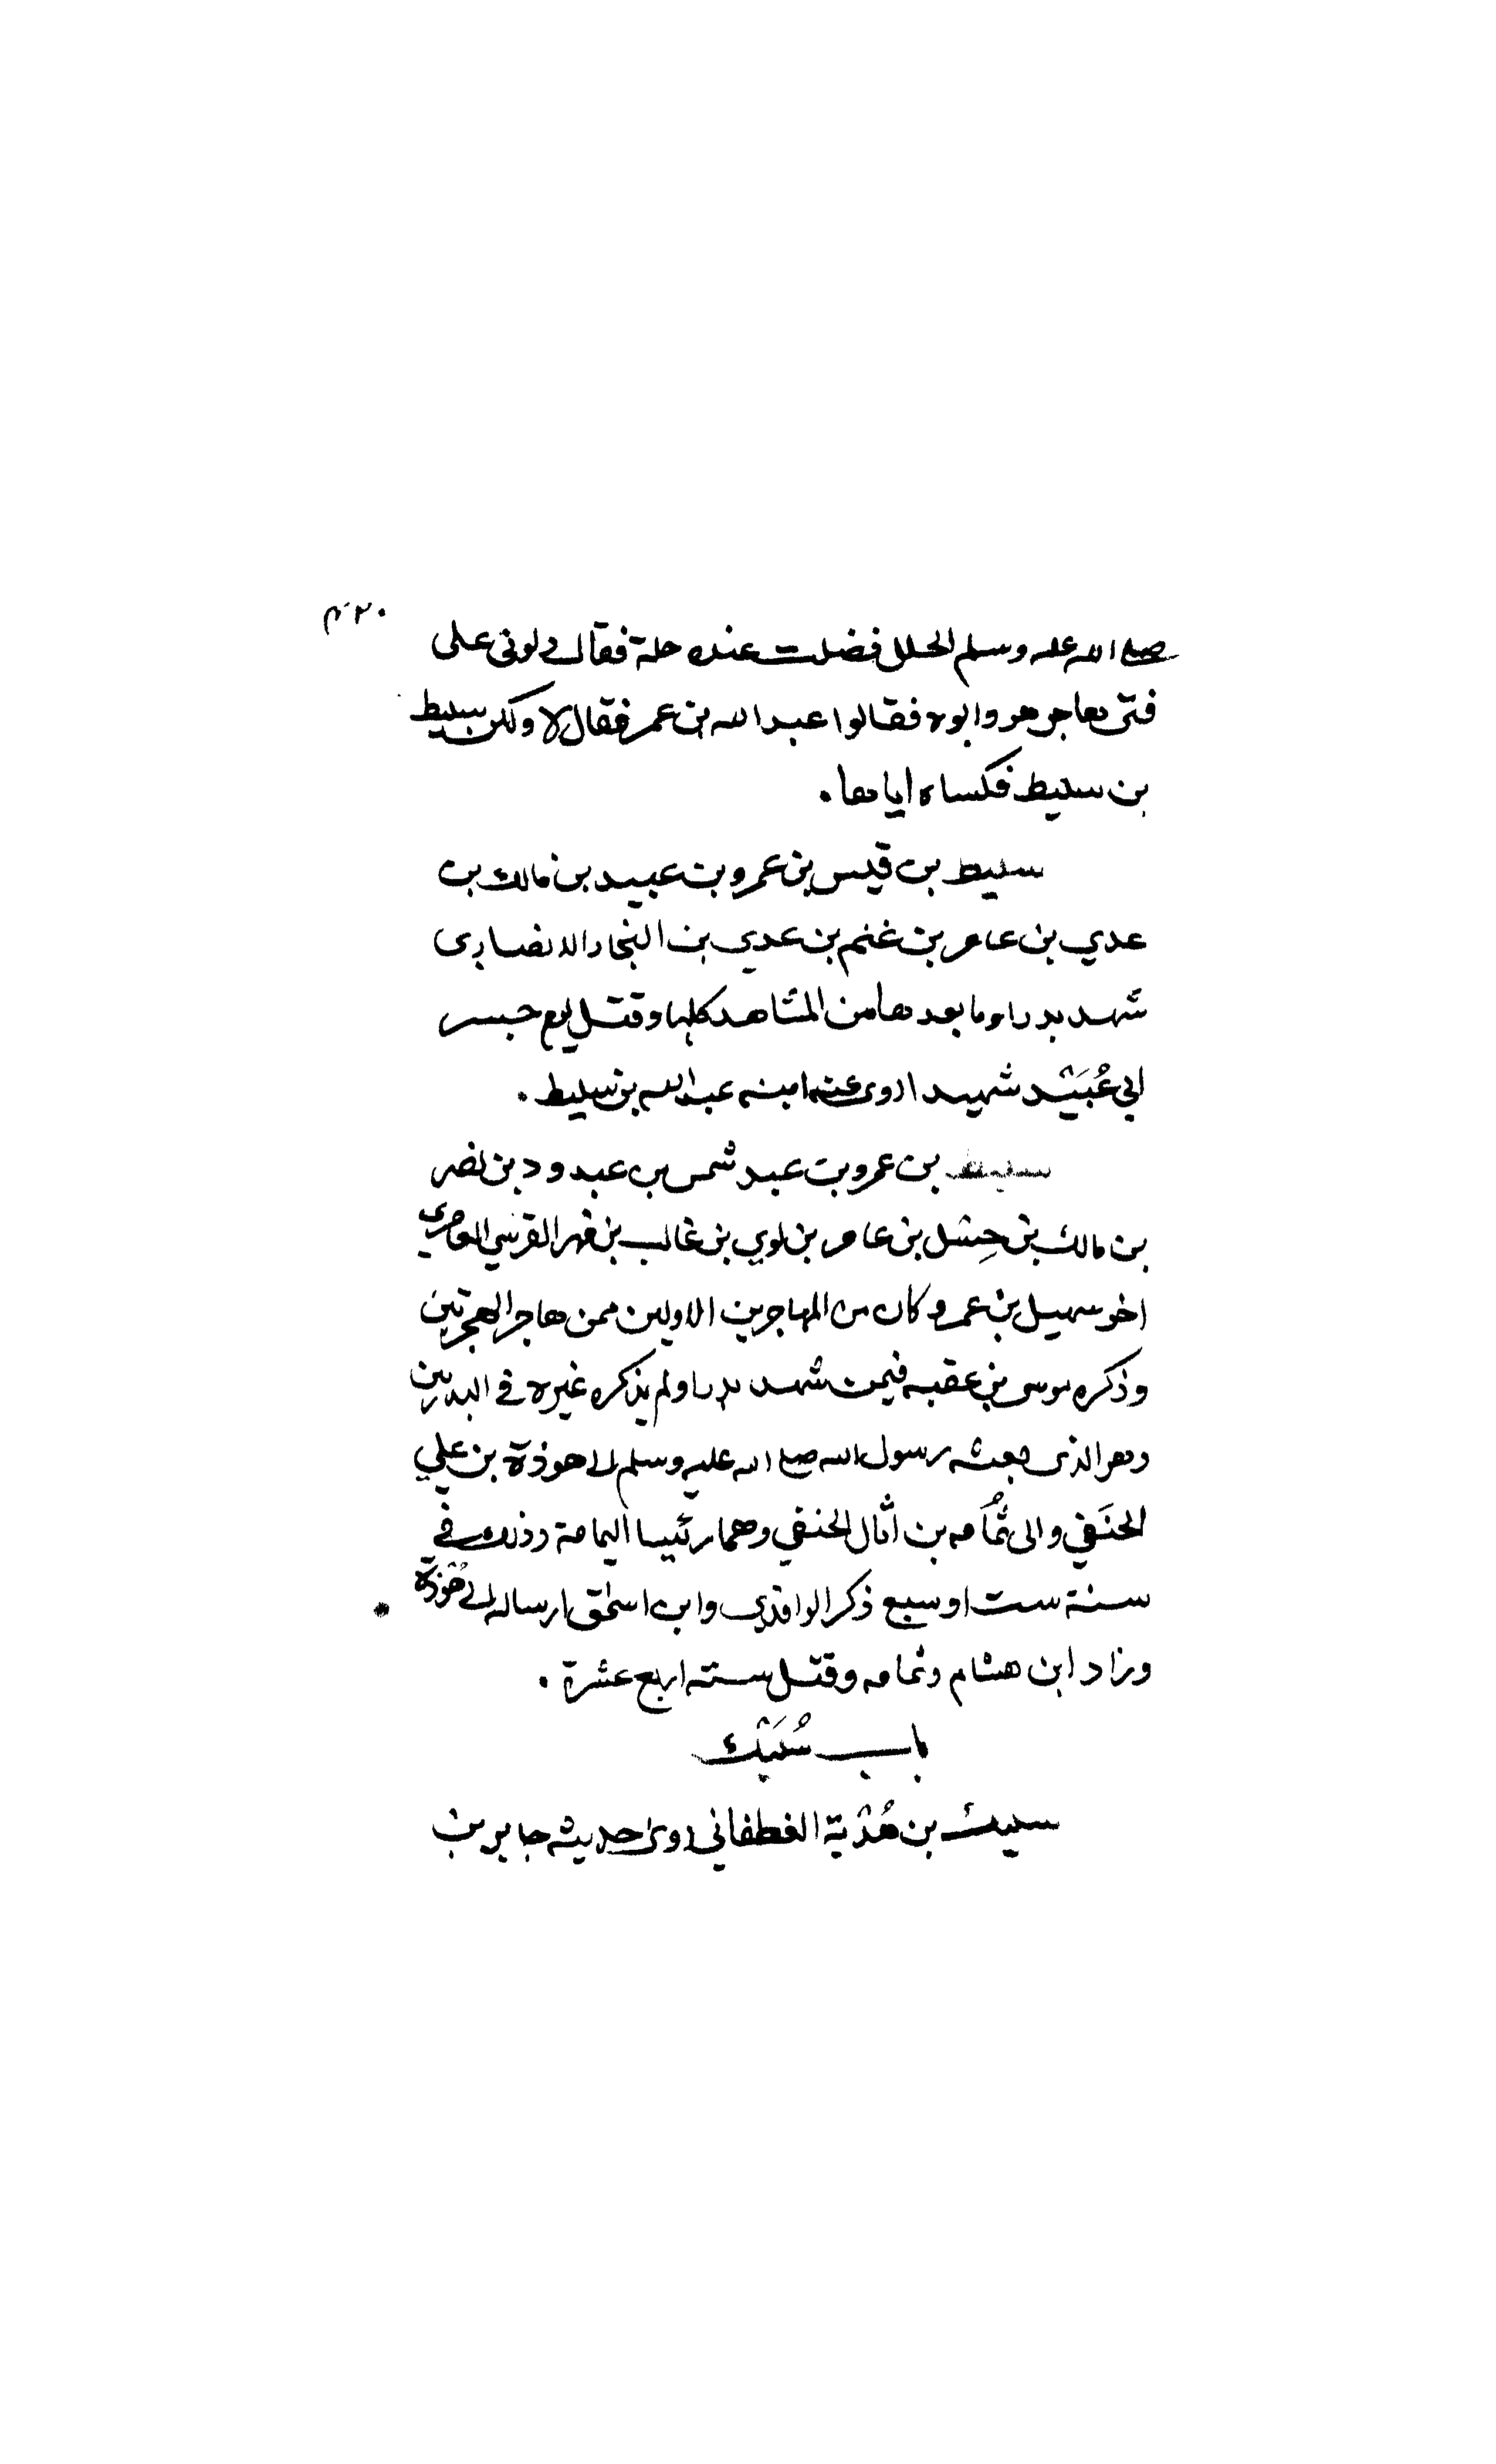 ٢٠
صلى الله عليه وسلم الحلل فضلت عنده حلة فقال دلوني على
فتى هاجر هو وابوه فقالوا عبد الله بن عمر فقال لا ولكن سليط
بن سليط فكساه اياها .
سليط بن قيس بن عمرو بن عبيد بن مالك بن
عدي بن عامر بن غنم بن عدي بن النجار الانصاري
شهد بدرا وما بعدها من المشاهد كلها وقتل يوم جسر
ابي عُبَيْد شهيدا روى عنه ابنه عبد الله بن سليط .
سليط بن عمرو بن عبد شمس بن عبد ود بن نصر
بن مالك بن حِسْل بن عامر بن لوي بن غالب بن فهر القرشي العامري
اخو سهيل بن عمرو كان من المهاجرين الاولين ممن هاجر الهجرتين
وذكره موسى بن عقبه فيمن شهد بدرا ولم يذكره غيره في البدريين
وهو الذي بعثه رسول الله صلى الله عليه وسلم الى هوذة بن علي
الحنَفي والى ثُمَامه بن اثال الحنفي وهما رئيسا اليمامة وذلك في
سنة ست او سبع ذكر الواقدي وابن اسحق ارساله الى هَوْذة
وزاد ابن هشام وثمامه وقتل سنة اربع عشرة .
باب سُلَيْك
سليك بن هُدْبة الغطفاني روى حديثه جابر بن